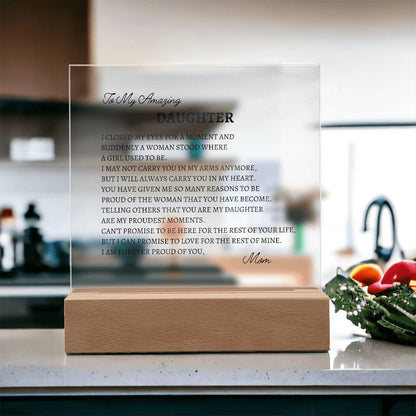 To My Amazing
DAUGHTER
I CLOSED MY EYES FOR A MOMENT AND
SUDDENLY A WOMAN STOOD WHERE
A GIRL USED TO BE.
I MAY NOT CARRY YOU IN MY ARMS ANYMORE,
BUT I WILL ALWAYS CARRY YOU IN MY HEART.
YOU HAVE GIVEN ME SO MANY REASONS TO BE
PROUD OF THE WOMAN THAT YOU HAVE BECOME.
TELLING OTHERS THAT YOU ARE MY DAUGHTER
ARE MY PROUDEST MOMENTS.
CAN'T PROMISE TO BE HERE FOR THE REST OF YOUR LIFE,
BUT I CAN PROMISE TO LOVE FOR THE REST OF MINE.
I AM FOREVER PROUD OF YOU,
Mom